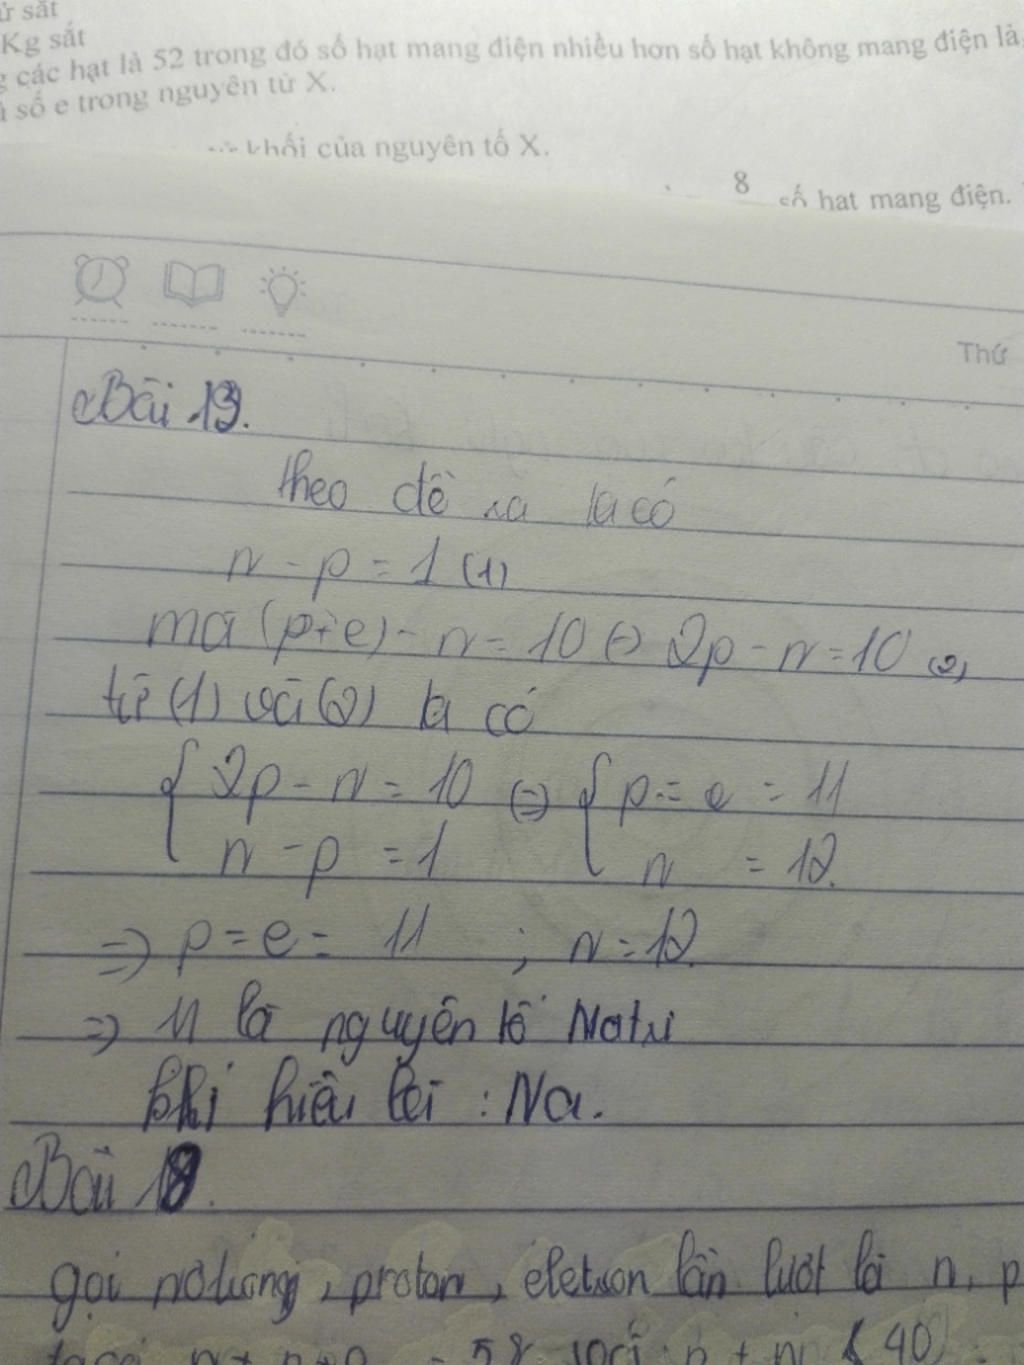 ử sắt
Kg sắt
g các hạt là 52 trong đó số hạt mang điện nhiều hơn số hạt không mang điện là
à số e trong nguyên tử X.
khối của nguyên tố X.
8
số hạt mang điện.
Thứ
Bài 19.
theo đề ra ta có
n - p = 1 (1)
mà (p+e) - n = 10 (=) 2p - n = 10 (2)
từ (1) và (2) ta có
{ 2p - n = 10 (=) { p = e = 11
n - p = 1 n = 12.
=> p = e = 11 ; n = 12.
=> M là nguyên tố Natri
khí hiệu là : Na.
Bài 18.
gọi nơtrong, proton, eletron lần lượt là n, p
58 p + n < 40